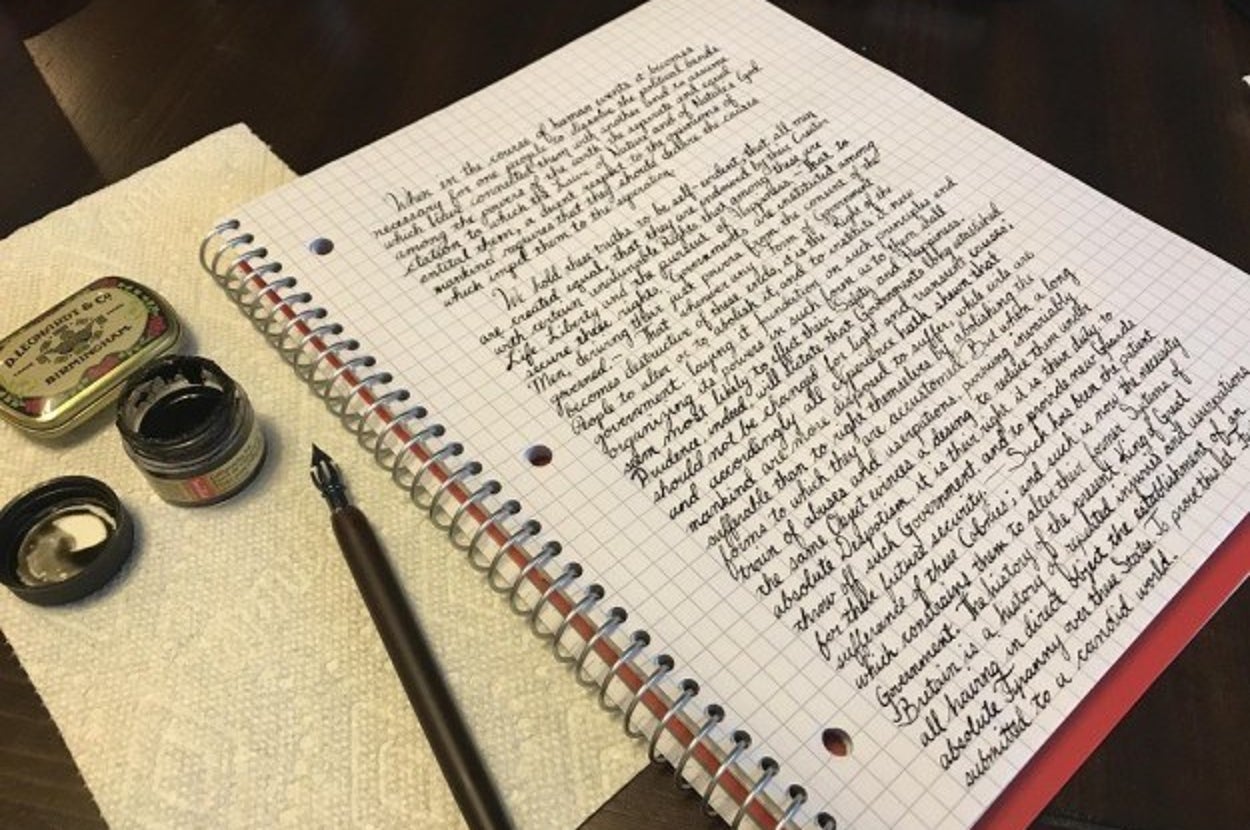 D. LEONARDT & Co
BIRMINGHAM
When in the course of human events it becomes
necessary for one people to dissolve the political bands
which have connected them with another and to assume
among the powers of the earth, the separate and equal
station to which the Laws of Nature and of Nature's God
entitle them, a decent respect to the opinions of
mankind requires that they should declare the causes
which impel them to the separation.
We hold these truths to be self-evident, that all men
are created equal, that they are endowed by their Creator
with certain unalienable Rights, that among these are
Life, Liberty and the pursuit of Happiness. - That to
secure these rights, Governments are instituted among
Men, deriving their just powers from the consent of the
governed, - That whenever any Form of Government
becomes destructive of these ends, it is the Right of the
People to alter or to abolish it, and to institute new
Government, laying its foundation on such principles and
organizing its powers in such form, as to them shall
seem most likely to effect their Safety and Happiness.
Prudence indeed, will dictate that Governments long established
should not be changed for light and transient causes;
and accordingly all experience hath shewn that
mankind are more disposed to suffer, while evils are
sufferable than to right themselves by abolishing the
forms to which they are accustomed. But when a long
train of abuses and usurpations, pursuing invariably
the same Object evinces a desing to reduce them under
absolute Despotism, it is their right, it is their duty, to
throw off such Government, and to provide new Guards
for their future security. - Such has been the patient
sufference of these Colonies; and such is now the necessity
which constrains them to alter their former Systems of
Government. The history of the present King of Great
Britain is a history of repeated injuries and usurpations
all having in direct object the establishment of an
absolute Tyranny over these States. To prove this let
submitted to a candid world.